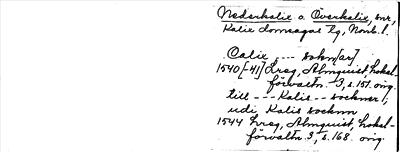 Nederkalix o. Överkalix, snr,
Kalix domsagas tg, Norrb. l.
Calix ... sokn[ar]
1540[-41] Lreg, Almquist, Lokal-
förvaltn. 3, s. 151. orig.
till --- Kalis -- sockner 1,
udi Kalis socknn
1544 Lreg, Almquist, Lokal-
förvaltn 3, s. 168. orig